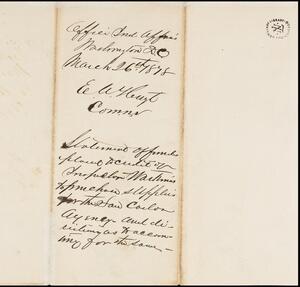 Office Ind Affairs
Washington DC
March 26th 1878
E A Hayt
Commr
Statement of funds
placed to credit of
Inspector Watkins
to purchase supplies
for the San Carlos
Agency and di-
recting as to accoun-
ting for the same